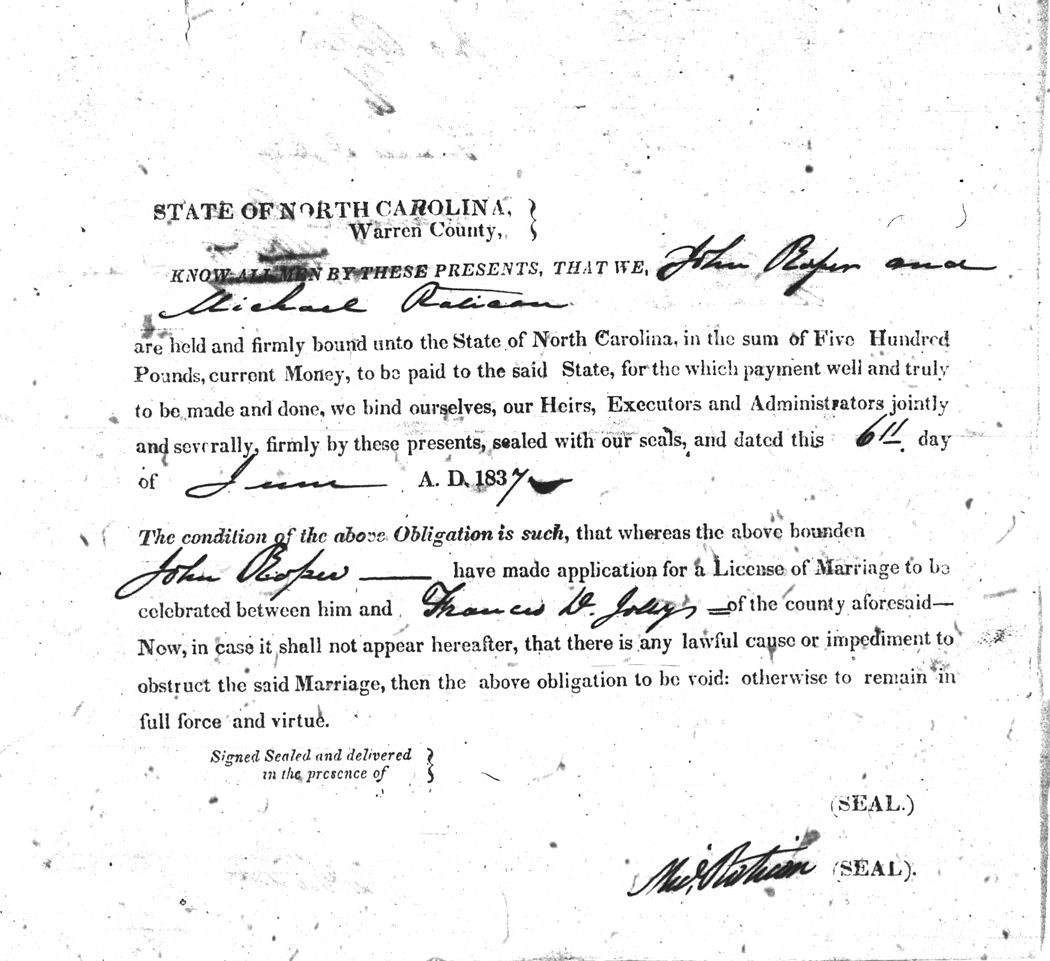 STATE OF NORTH CAROLINA,
Warren County,
KNOW ALL MEN BY THESE PRESENTS, THAT WE, John Roper and
Michael Ratican
are held and firmly bound unto the State of North Carolina, in the sum of Five Hundred
Pounds, current Money, to be paid to the said State, for the which payment well and truly
to be made and done, we bind ourselves, our Heirs, Executors and Administrators jointly
and severally, firmly by these presents, sealed with our seals, and dated this 6th day
of June A. D. 1837
The condition of the above Obligation is such, that whereas the above bounden
John Roper have made application for a License of Marriage to be
celebrated between him and Frances D. of the county aforesaid—
Now, in case it shall not appear hereafter, that there is any lawful cause or impediment to
obstruct the said Marriage, then the above obligation to be void: otherwise to remain in
full force and virtue.
Signed Sealed and delivered
in the presence of
(SEAL.)
Ratican (SEAL).